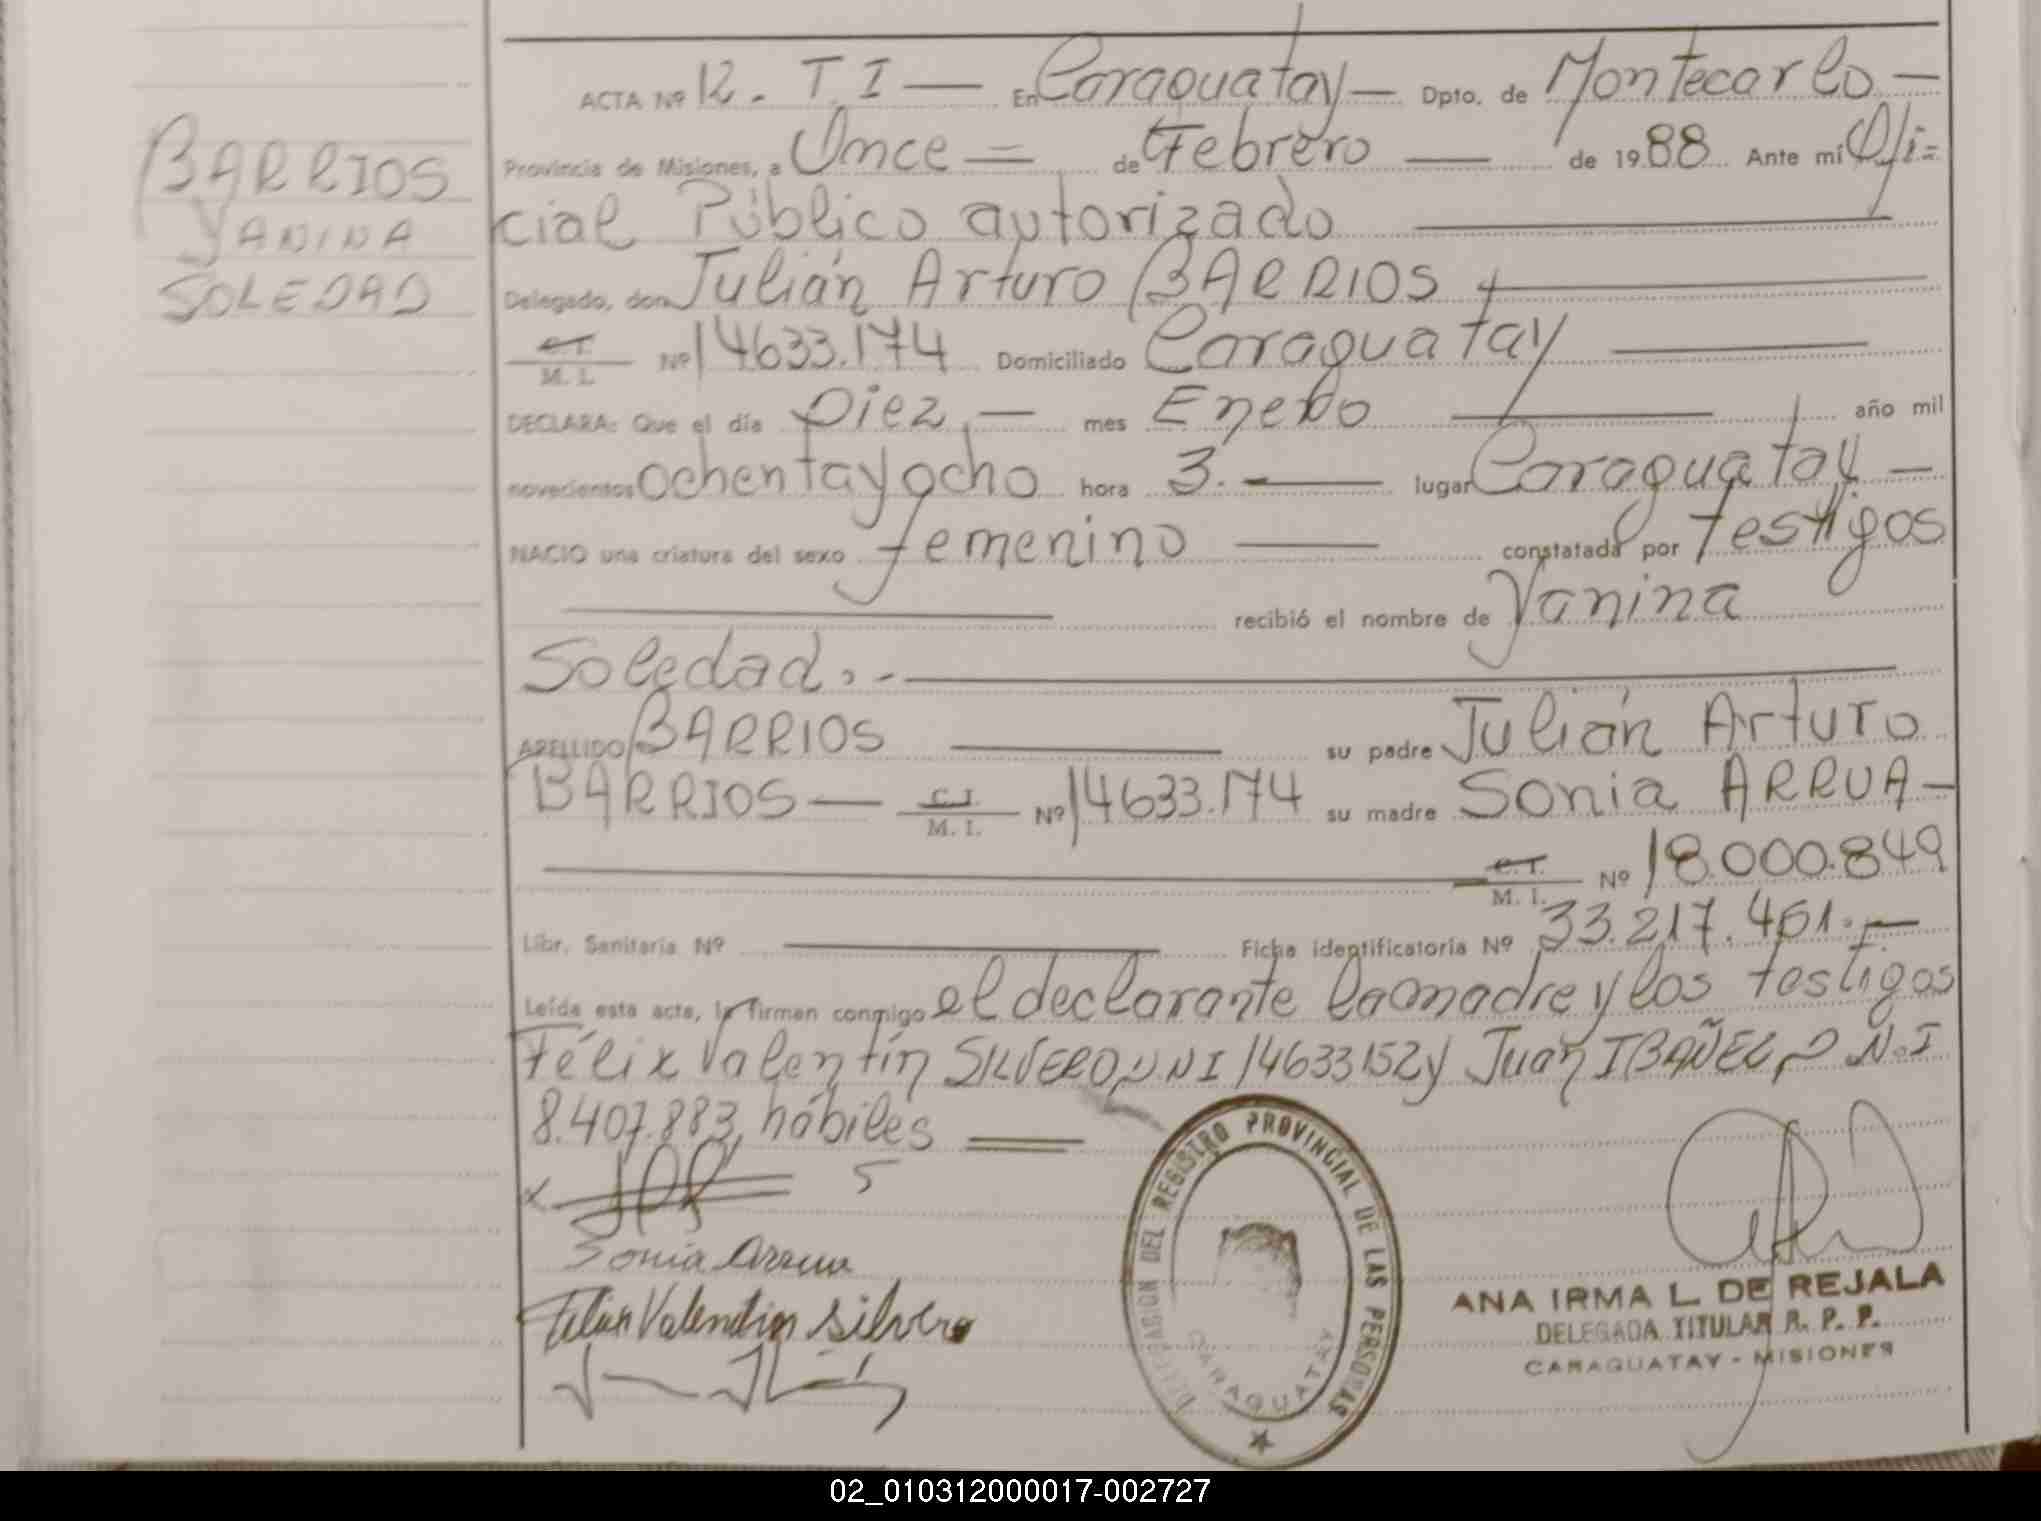 BARRIOS
YANINA
SOLEDAD
ACTA Nº 12. T. I — En Caraguatay — Dpto. de Montecarlo —
Provincia de Misiones, a Once = de Febrero — de 1988 Ante mí Ofi=
cial Público autorizado
Delegado, don Julián Arturo BARRIOS
C.I. M. I. Nº 14633.174 Domiciliado Caraguatay —
DECLARA: Que el día Diez, — mes Enero — año mil
novecientos ochenta y ocho hora 3. — lugar Caraguatay —
NACIO una criatura del sexo femenino — constatada por testigos
— recibió el nombre de Yanina
Soledad. - —
APELLIDO BARRIOS — su padre Julián Arturo
BARRIOS — C.I. M. I. Nº 14633.174 su madre Sonia ARRUA —
— C.I. M. I. Nº 18.000.849
Libr. Sanitaria Nº — Ficha identificatoria Nº 33.217.461. —
Leída esta acta, la firman conmigo el declarante la madre y los testigos
Félix Valentín SILVERO D.N.I 14633152 y Juan IBAÑEZ, D.N.I
8.407.883, hábiles =
Sonia Arrua
Felix Valentin Silvero
DELEGACION DEL REGISTRO PROVINCIAL DE LAS PERSONAS
CARAGUATAY
ANA IRMA L. DE REJALA
DELEGADA TITULAR R. P. P.
CARAGUATAY - MISIONES
02_010312000017-002727